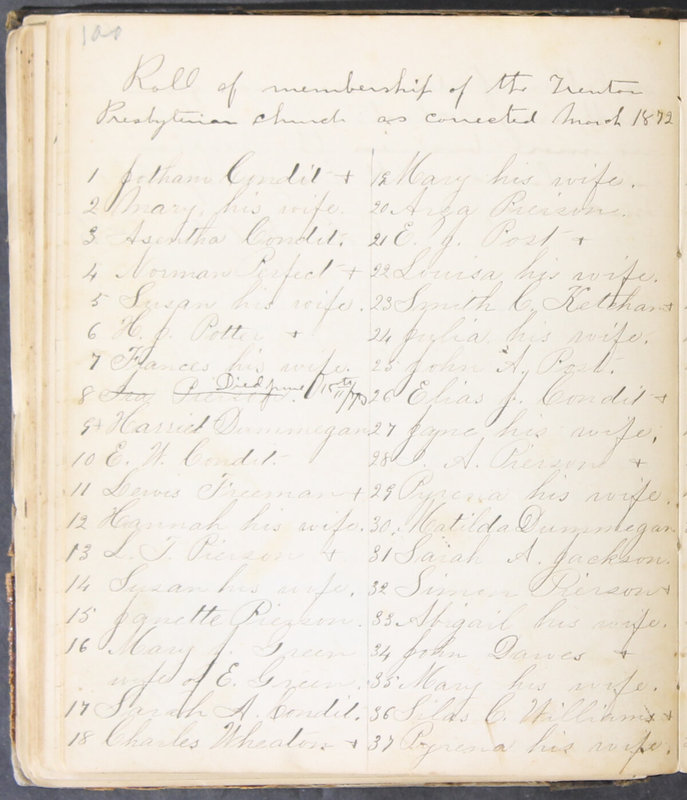 100
Roll of membership of the Trenton
Presbyterian church as corrected March 1872
1 Jotham Condit +
2 Mary, his wife.
3 Asentha Condit.
4 Norman Perfect +
5 Susan his wife.
6 H. J. Potter +
7 Frances his wife.
Died June 15th
8 Ira Pierson.
9+ Harriet Dunmegan
10 E. W. Condit
11 Lewis Freeman +
12 Hannah his wife.
13 L. T. Pierson +
14 Susan his wife.
15 Janette Pierson.
16 Mary Green
wife of E. Green.
17 Sarah A. Condit.
18 Charles Wheaton +
19 Mary his wife.
20 Pierson.
21 E. J. Post +
22 Louisa his wife.
23 Smith C. Ketcham +
24 Julia his wife.
25 John A. Post.
26 Elias J. Condit +
27 Jane his wife.
28 A. Pierson +
29 Pyrena his wife.
30. Matilda Dunmegan
31 Sarah A. Jackson.
32 Simon Pierson +
33 Abigail his wife.
34 John Dawes +
35 Mary his wife.
36 Silas C. Williams +
37 Pyrena his wife.